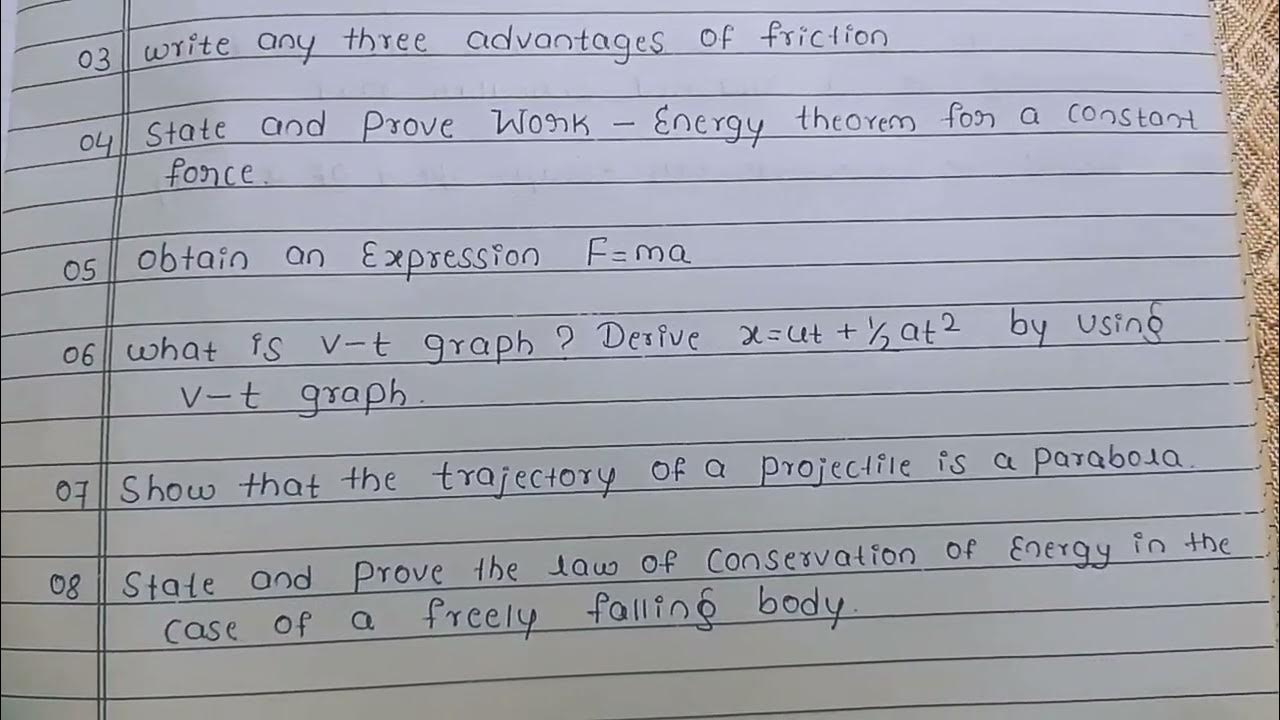 03 write any three advantages of friction
04 State and prove Work - Energy theorem for a constant
force.
05 Obtain an Expression F=ma
06 what is v-t graph ? Derive x=ut+½at² by using
v-t graph.
07 Show that the trajectory of a projectile is a parabola.
08 State and prove the law of conservation of Energy in the
case of a freely falling body.